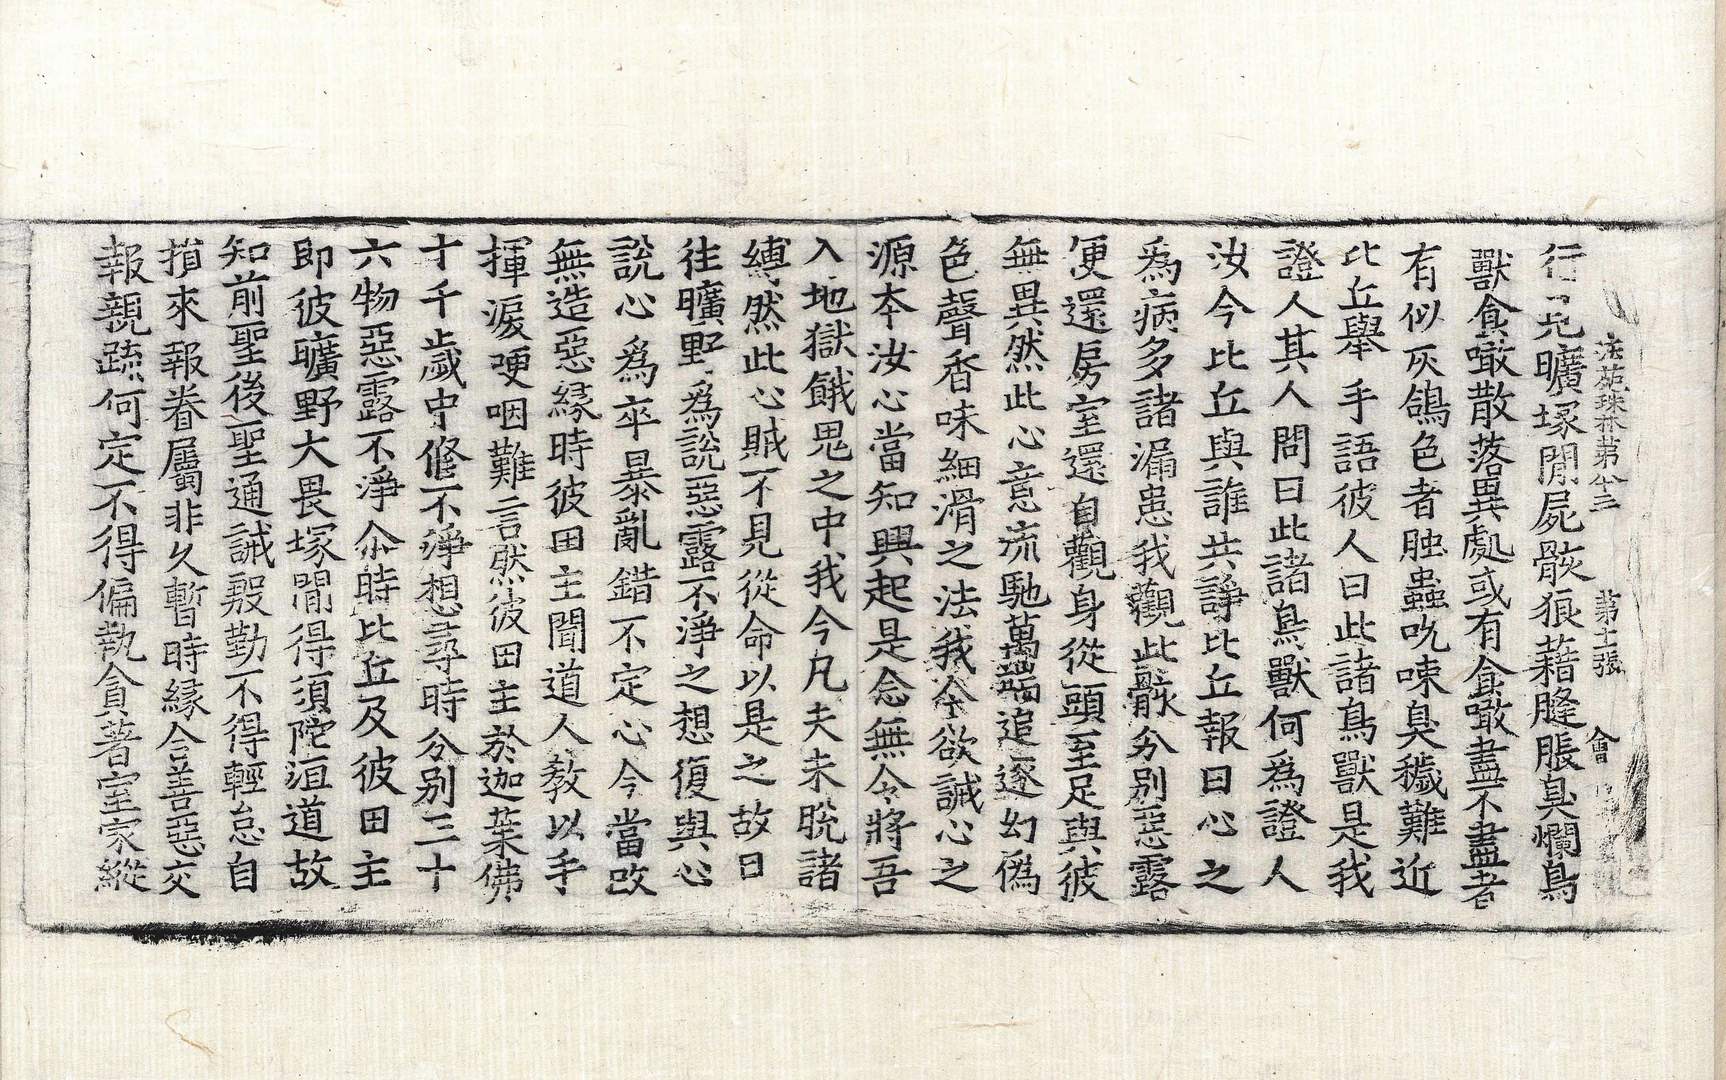 法苑珠林第八十三 第十一張 會
行見曠塚間屍骸狼藉膖脹臭爛鳥
獸食噉散落異處或有食噉盡不盡者
有似灰鴿色者䏣蟲吮㖨臭穢難近
比丘舉手語彼人曰此諸鳥獸是我
證人其人問曰此諸鳥獸何爲證人
汝今比丘與誰共諍比丘報曰心之
爲病多諸漏患我觀此骸分別惡露
便還房室還自觀身從頭至足與彼
無異然此心意流馳萬端追逐幻僞
色聲香味細滑之法我今欲誡心之
源本汝心當知興起是念無令將吾
入地獄餓鬼之中我今凡夫未脫諸
縛然此心賊不見從命以是之故日
往曠野爲說惡露不淨之想復與心
說心爲卒暴亂錯不定心今當改
無造惡緣時彼田主聞道人教以手
揮淚哽咽難言然彼田主於迦葉佛
十千歲中修不淨想尋時分別三十
六物惡露不淨尒時比丘及彼田主
即彼曠野大畏塚間得須陀洹道故
知前聖後聖通誡殷勤不得輕怠自
損來報眷屬非久暫時緣合善惡交
報親疏何定不得偏執貪著室家縱